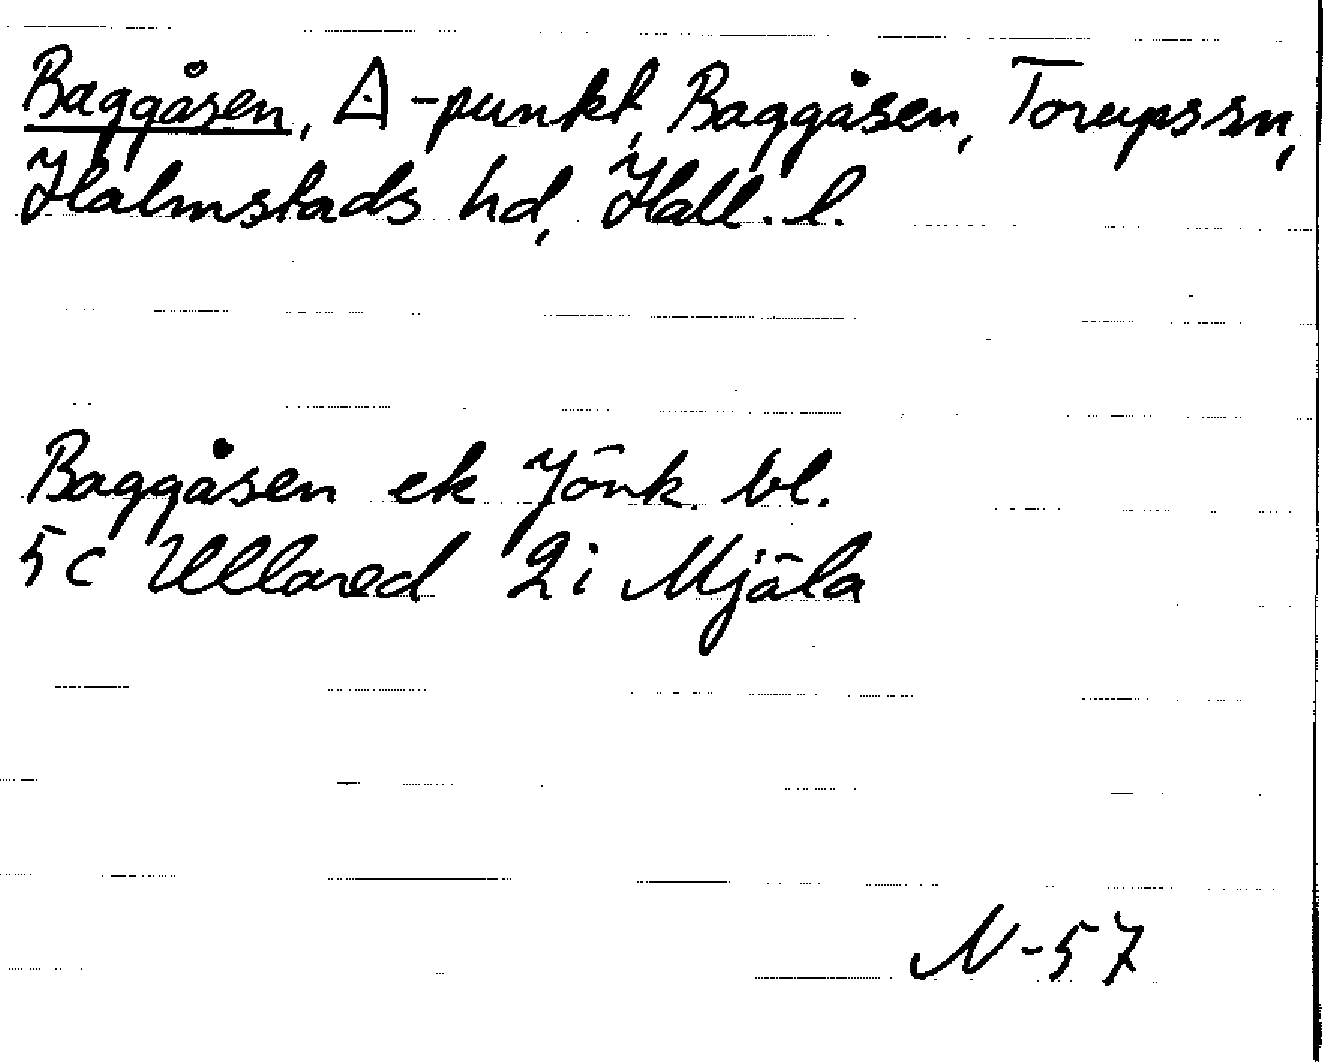 Baggåsen, △-punkt, Baggåsen, Torups sn,
Halmstads hd, Hall. l.
Baggåsen ek Jönk. bl.
5c Ullared 2i Mjäla
N-57